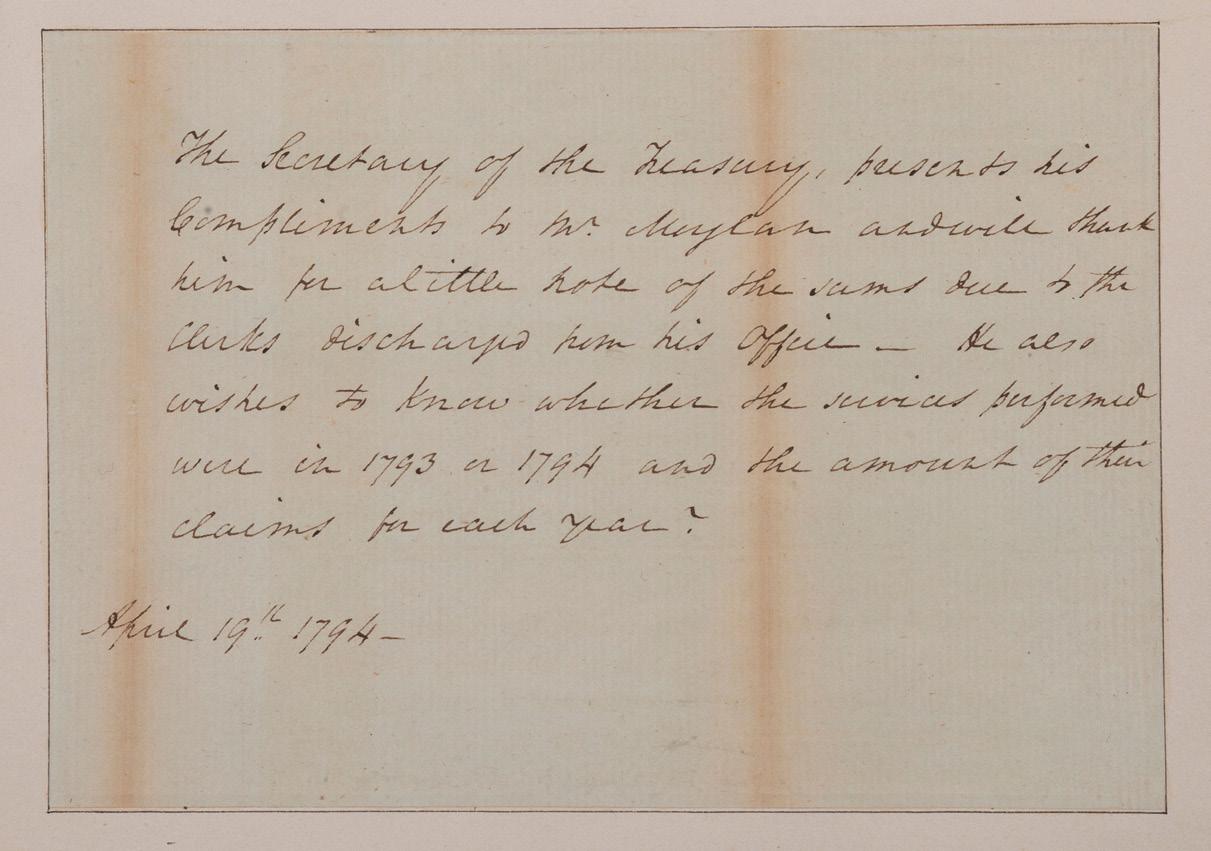 The Secretary of the Treasury, presents his
Compliments to Mr. Moylan and will thank
him for a little note of the sums due to the
Clerks discharged from his Office — He also
wishes to know whether the services performed
were in 1793 or 1794 and the amount of their
claims for each year?
April 19th 1794 —